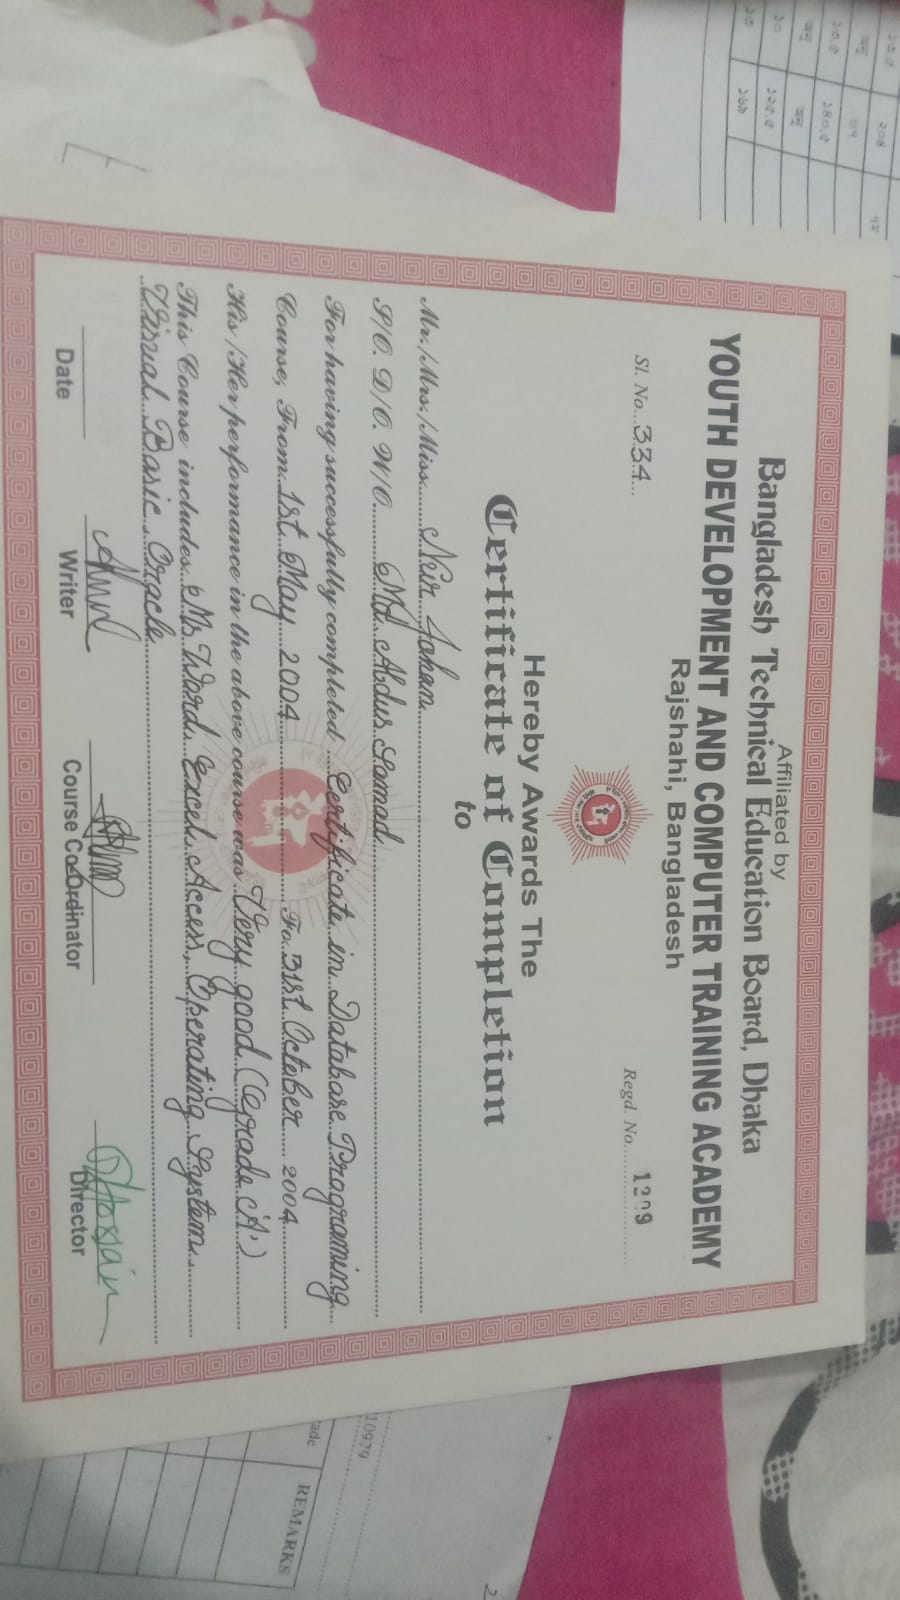 Affiliated by
Bangladesh Technical Education Board, Dhaka
YOUTH DEVELOPMENT AND COMPUTER TRAINING ACADEMY
Rajshahi, Bangladesh
Sl. No. 334
Regd. No.
Hereby Awards The
Certificate of Completion
to
Mr./Mrs./Miss. Nur Jahan
S/O. D/O. W/O. Md. Abdus Samad
For having successfully completed Certificate in Database Programing
Course, From 1st May 2004 To 31st October 2004
His /Her performance in the above course was Very good (Grade 'A')
This Course includes Ms Word, Excel, Access, Operating System,
Visual Basic, Oracle
Date
Writer
Course Co-Ordinator
Hossain
Director
১০.৫ ২০৪
অনু ০৭
১০.৫ ১৪০.৫
অনু অনু
১০ ১২৫.৫
১৩ ১৬৯
10979
REMARKS